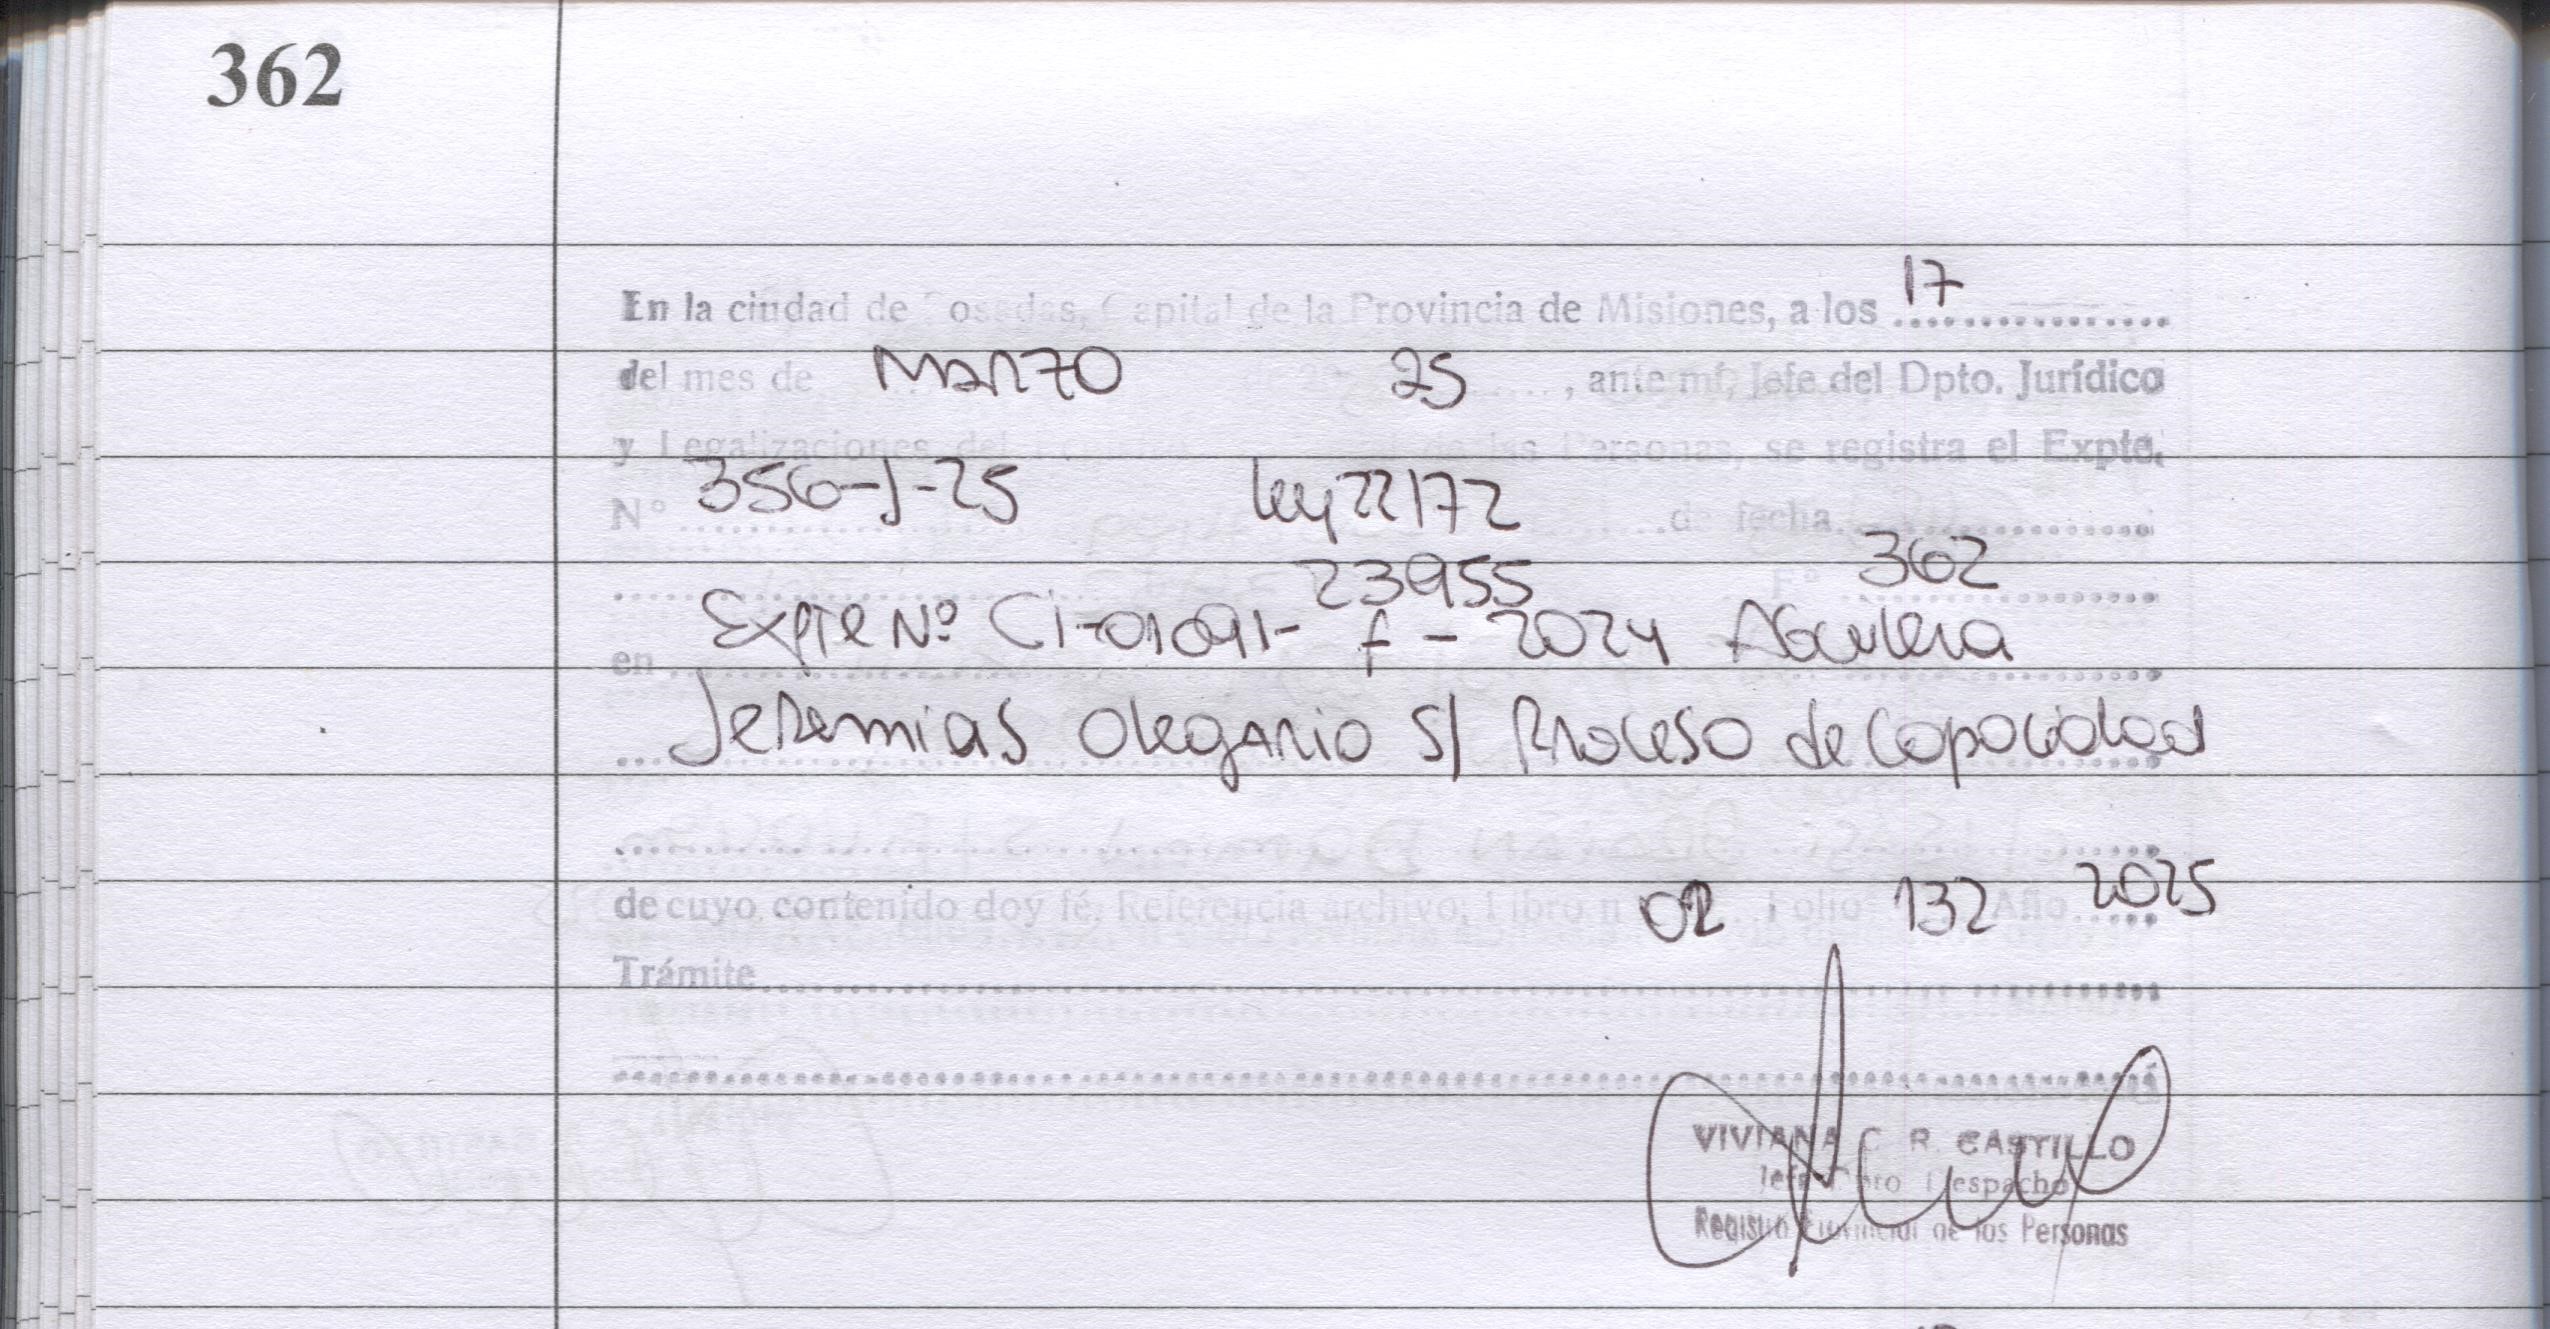 362
En la ciudad de Posadas, Capital de la Provincia de Misiones, a los 17
del mes de Marzo 25, ante mí, Jefe del Dpto. Jurídico
y Legalizaciones del las Personas, se registra el Expte.
Nº 356-J-25 Ley 22172 de fecha
23955 Fº 362
Expte Nº CI-01091-F-2024 Aguilera
en
Jeremias Olegario S/ Proceso de Capacidad
de cuyo contenido doy fé. Referencia archivo; Libro n 02 Folio 132 Año 2025
Trámite
VIVIANA C. R. CASTILLO
Jefe Dpto Despacho
Registro Provincial de las Personas